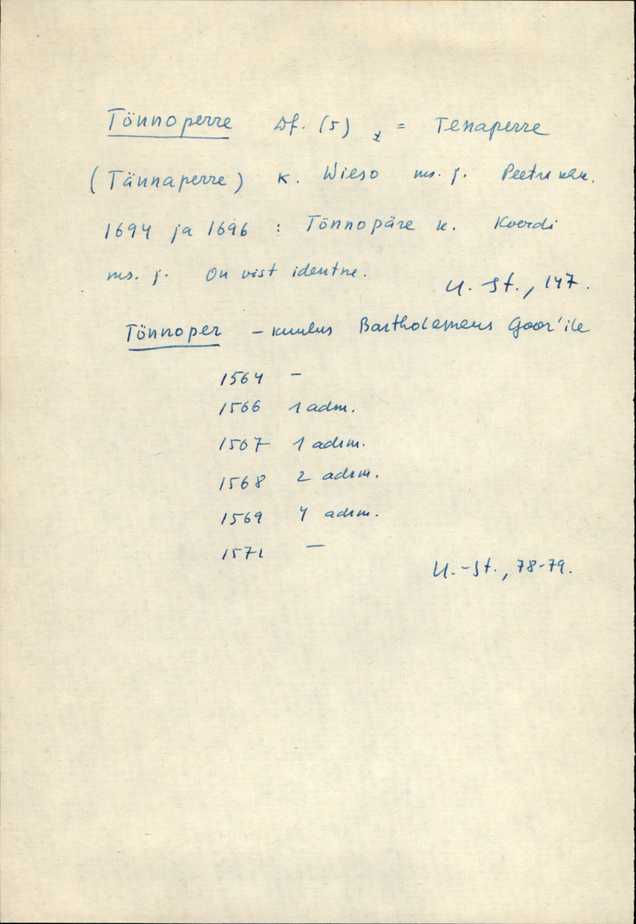 Tönnoperre Df. (5) = Tenaperre
(Tännaperre) k. Wieso ms. j. Peetri
1694 ja 1696 : Tönnopäre k. Koordi
ms. j. On vist identne.
U.-St., 147.
Tönnoper - kuulus Bartholemeus Goor'ile
1564 -
1566 1 adm.
1567 1 adrm.
1568 2 adrm.
1569 4 adrm.
1571 -
U.-St., 78-79.